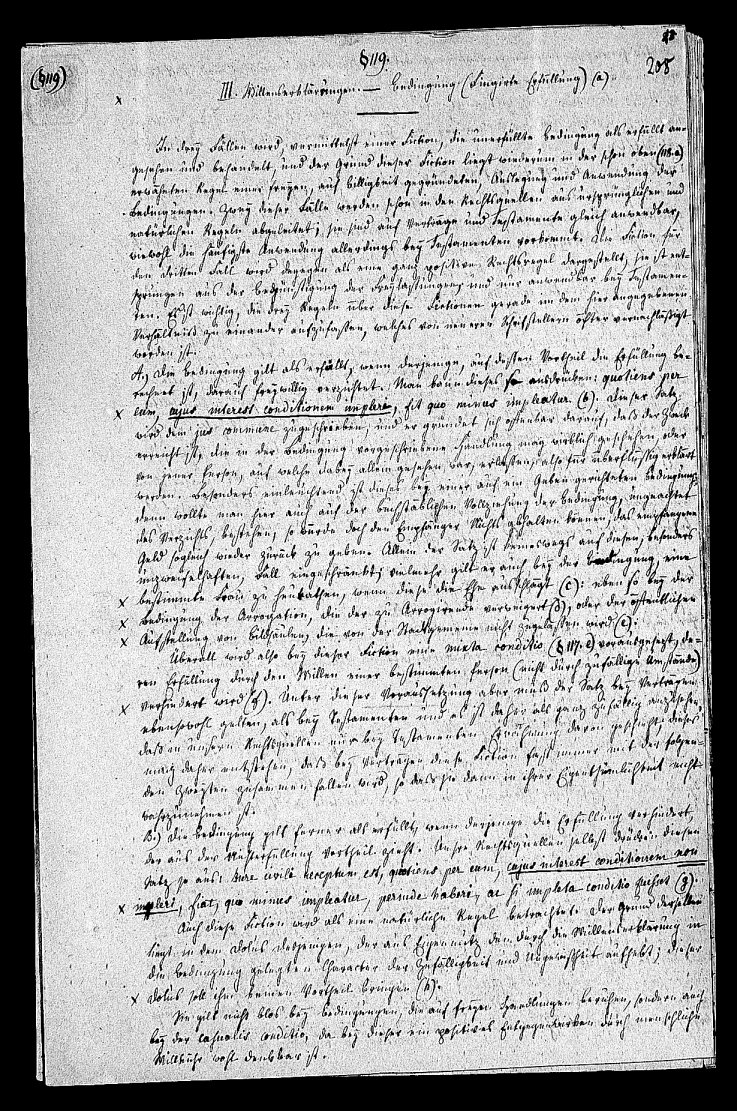 §119.
(§119)
208
III. Willenserklärungen. — Bedingung. (Fingirte Erfüllung) (a)
In drey Fällen wird, vermittelst einer Fiction, die unerfüllte Bedingung als erfüllt an-
gesehen und behandelt, und der Grund dieser Fiction liegt wiederum in der schon oben (118.a)
erwähnten Regel einer freyen, auf Billigkeit gegründeten, Auslegung und Anwendung der
Bedingungen. Zwey dieser Fälle werden schon in den Rechtsquellen aus ursprünglichen und
natürlichen Regeln abgeleitet; sie sind auf Verträge und Testamente gleich anwendbar,
wiewohl die häufigste Anwendung allerdings bey Testamenten vorkommt. Die Fiction für
den dritten Fall wird dagegen als eine ganz positive Rechtsregel dargestellt; sie ist ent-
sprungen aus der Begünstigung der Freylassungen, und nur anwendbar bey Testamen-
ten. Es ist wichtig, die drey Regeln über diese Fictionen gerade in dem hier angegebenen
Verhältniß zu einander aufzufassen, welches von neueren Schriftstellern öfter vernachläßigt
worden ist.
A.) Die Bedingung gilt als erfüllt, wenn derjenige, auf dessen Vortheil die Erfüllung be-
rechnet ist, darauf freywillig verzichtet. Man kann dieses so ausdrücken: quotiens per
eum, cujus interest conditionem impleri, fit quo minus impleatur. (b). Dieser Satz
wird dem jus commune zugeschrieben, und er gründet sich offenbar darauf, daß der Zweck
erreicht ist, die in der Bedingung vorgeschriebene Handlung mag wirklich geschehen, oder
von jener Person, auf welche dabey allein gesehen war, erlassen, also für überflüssig erklärt
werden. Besonders einleuchtend ist dieses bey einer auf ein Geben gerichteten Bedingung,
denn wollte man hier auch auf der buchstäblichen Vollziehung der Bedingung, ungeachtet
des Verzichts, bestehen, so würde doch den Empfänger Nichts abhalten können, das empfangene
Geld sogleich wieder zurück zu geben. Allein der Satz ist keineswegs auf diesen, besonders
unzweifelhaften, Fall eingeschränkt; vielmehr gilt er auch bey der Bedingung, eine
bestimmte Frau zu heurathen, wenn diese die Ehe ausschlägt (c): eben so bey der
Bedingung der Arrogation, die der zu Arrogirende verweigert (d), oder der öffentlichen
Aufstellung von Bildsäulen, die von der Stadtgemeine nicht zugelassen wird (e).
Überall wird also bey dieser Fiction eine mixta conditio (§117.e) vorausgesetzt, de-
ren Erfüllung durch den Willen einer bestimmten Person (nicht durch zufällige Umstände)
verhindert wird (f). Unter dieser Voraussetzung aber muß der Satz bey Verträgen
ebensowohl gelten, als bey Testamenten und es ist daher als ganz zufällig anzusehen,
daß in unsern Rechtsquellen nur bey Testamenten Erwähnung davon geschieht; dieses
mag daher entstehen, daß bey Verträgen diese Fiction fast immer mit der folgen-
den zweyten zusammen fallen wird, so daß sie dann in ihrer Eigenthümlichkeit nicht
wahrzunehmen ist.
B.) Die Bedingung gilt ferner als erfüllt, wenn derjenige die Erfüllung verhindert,
der aus der Nichterfüllung Vortheil zieht. Unsre Rechtsquellen selbst drücken diesen
Satz so aus: Jure civili receptum est, quotiens per eum, cujus interest conditionem non
impleri, fiat, quo minus impleatur, perinde haberi, ac si impleta conditio fuisset (g).
Auch diese Fiction wird als eine natürliche Regel betrachtet. Der Grund derselben
liegt in dem Dolus desjenigen, der aus Eigennutz den durch die Willenserklärung in
die Bedingung gelegten Character der Zufälligkeit und Ungewißheit aufhebt; dieser
Dolus soll ihm keinen Vortheil bringen (h).
Sie gilt nicht blos bey Bedingungen, die auf freyen Handlungen beruhen, sondern auch
bey der casualis conditio, da bey dieser ein positives Entgegenwirken durch menschliche
Willkühr wohl denkbar ist.